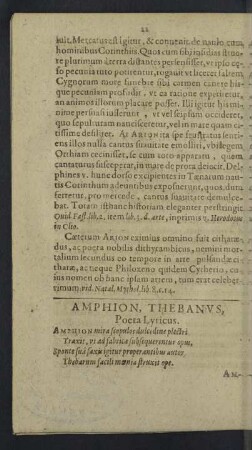 22
iult. Mercatus est igitur, & convenit de naulo cum
hominibus Corinthiis. Quos cum sibi insidias struere
plurimum à terra distantes persensisset, ut ipso
pecunia toto potirentur, rogavit ut liceret
Cygnorum more funebre sibi carmen canere
que pecuniam profudit, ut ea ratione experiretur,
an animos illorum placare posset. Illi igitur his
nime persuasi
quo sepulturam nancisceretur, vel in mare quam ci-
tissime desiliret. At ARIONITA spe frustratus
ens illos nulla cantus suavitate emolliri,
Orthium cecinisset, se cum toto apparatu, quem
cantaturus susceperat, in mare de prora dejecit. Del-
phines v. hunc dorso excipientes in Tænarum
tis Corinthum adeuntibus exposuerunt, quos dum
ferrent, pro mercede, cantus suavitate
bat. Totam isthanc historiam eleganter perstringit
Ovid. Fast. lib. 2. item lib. 5. d. arte, inprimis v. Herodotus
in Clio.
Cæterum ARION eximius omnino fuit citharœ-
dus, ac poëta nobilis dithyrambicus, nemini mor-
talium secundus eo tempore in arte pulsandæ ci-
tharæ, atque Philoxeno quidem Cytherio,
nia nomen ob hanc ipsam artem, tum erat celeber-
rimum vid. Natal. Mythol. lib. 8. c. 14.
AMPHION, THEBANVS,
Poëta Lyricus.
AMPHION mira scopulos dulcedine plectri
Traxit, ut ad fabrica subsequerentur opus.
Sponte sua saxa igitur properantibus
Thebarum facili mœnia struxit ope.
AM-